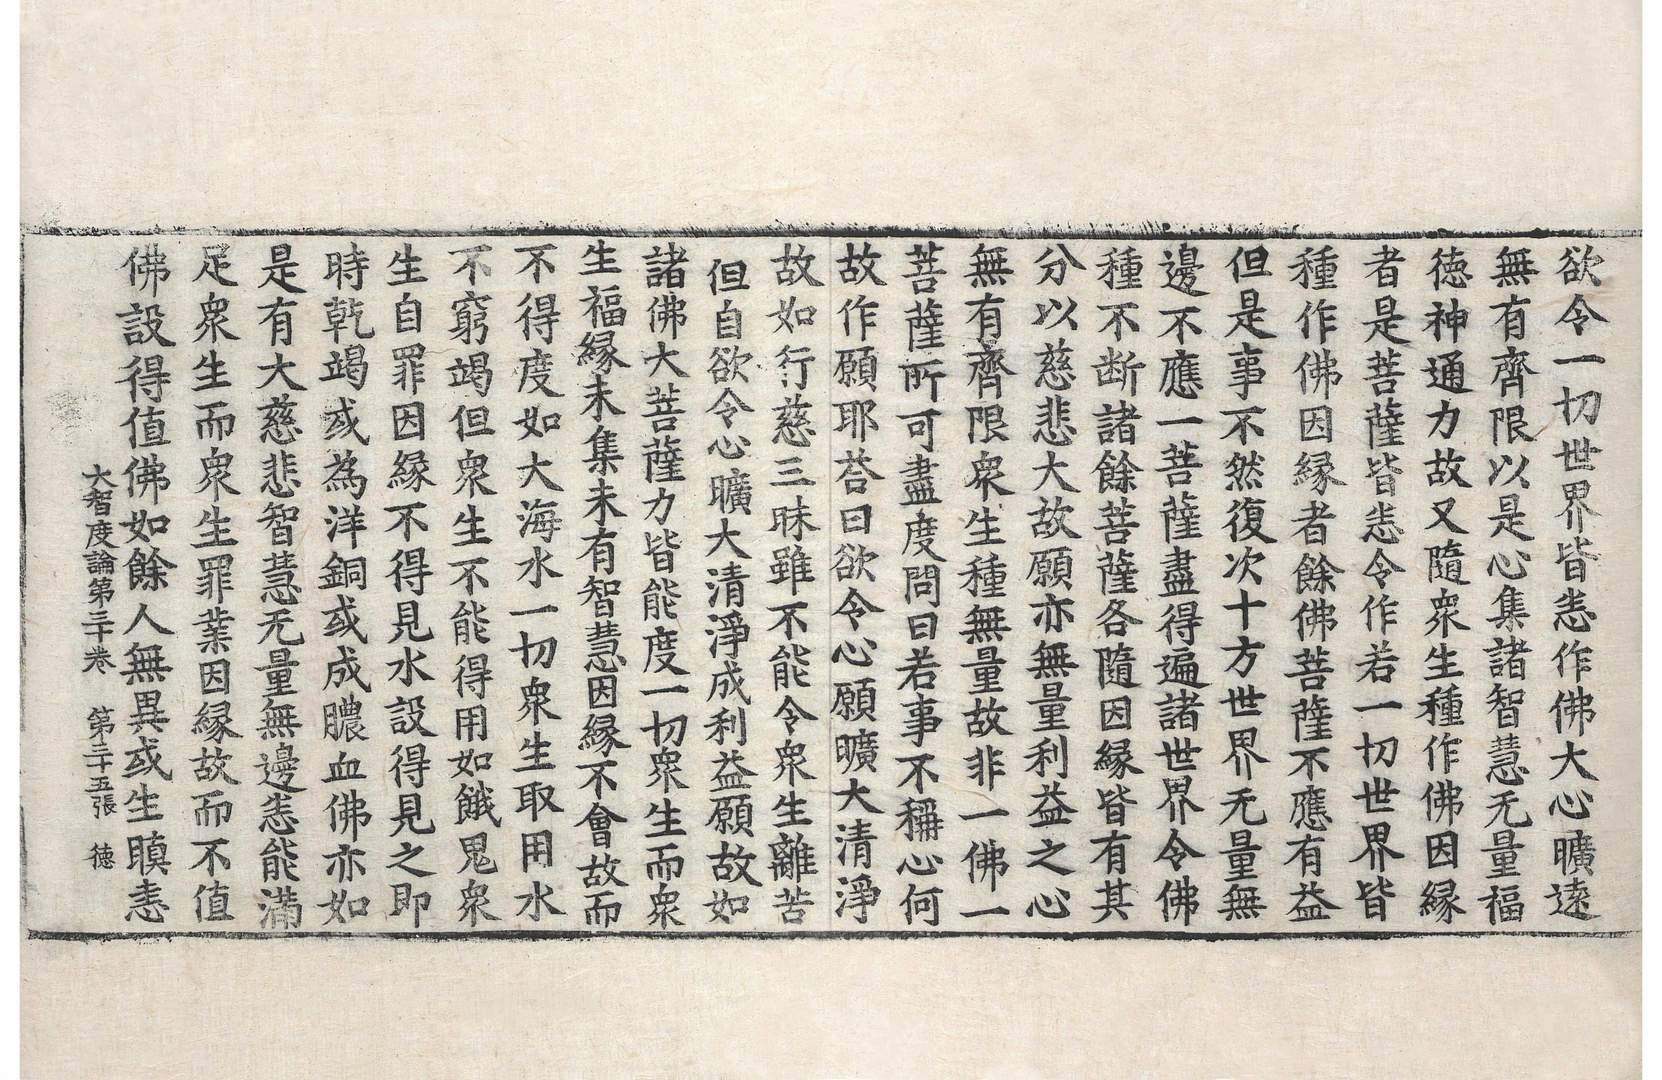 欲令一切世界皆悉作佛大心曠遠
無有齊限以是心集諸智慧无量福
徳神通力故又隨衆生種作佛因縁
者是菩薩皆悉令作若一切世界皆
種作佛因縁者餘佛菩薩不應有益
但是事不然復次十方世界无量無
邊不應一菩薩盡得遍諸世界令佛
種不断諸餘菩薩各隨因縁皆有其
分以慈悲大故願亦無量利益之心
無有齊限衆生種無量故非一佛一
菩薩所可盡度問曰若事不稱心何
故作願耶荅曰欲令心願曠大清淨
故如行慈三昧雖不能令衆生離苦
但自欲令心曠大清淨成利益願故如
諸佛大菩薩力皆能度一切衆生而衆
生福縁未集未有智慧因縁不會故而
不得度如大海水一切衆生取用水
不窮竭但衆生不能得用如餓鬼衆
生自罪因縁不得見水設得見之即
時乾竭或為洋銅或成膿血佛亦如
是有大慈悲智慧无量無邊悉能滿
足衆生而衆生罪業因縁故而不值
佛設得值佛如餘人無異或生瞋恚
大智度論第三十卷 第二十五張 徳